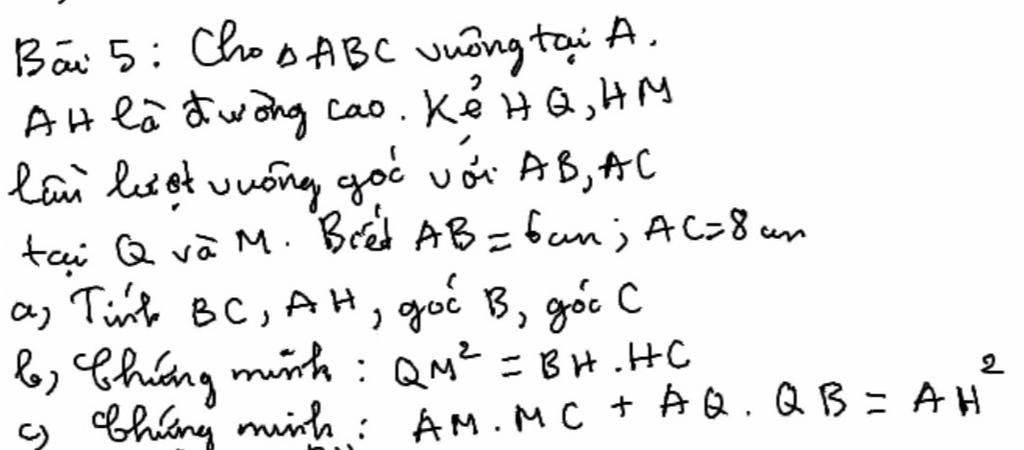 Bài 5: Cho ΔABC vuông tại A.
AH là đường cao. Kẻ HQ, HM
lần lượt vuông góc với AB, AC
tại Q và M. Biết AB = 6cm; AC = 8cm
a, Tính BC, AH, góc B, góc C
b, Chứng minh: QM² = BH.HC
c, Chứng minh: AM.MC + AQ.QB = AH²